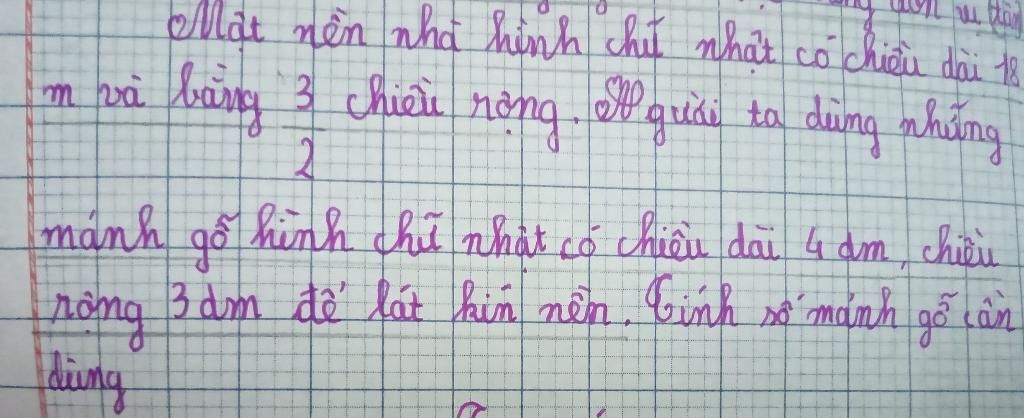 Một nền nhà hình chữ nhật có chiều dài 18
m và bằng 3/2 chiều rộng. Người ta dùng những
mảnh gỗ hình chữ nhật có chiều dài 4 dm, chiều
rộng 3 dm để lát kín nền. Tính số mảnh gỗ cần
dùng